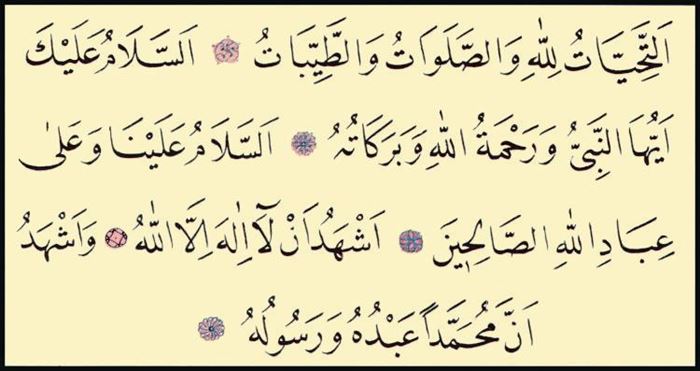 اَلتَّحِيَّاتُ لِلّٰهِ وَالصَّلَوَاتُ وَالطَّيِّبَاتُ اَلسَّلَامُ عَلَيْكَ
اَيُّهَا النَّبِيُّ وَرَحْمَةُ اللّٰهِ وَبَرَكَاتُهُ اَلسَّلَامُ عَلَيْنَا وَعَلٰى
عِبَادِ اللّٰهِ الصَّالِحِينَ اَشْهَدُ اَنْ لَٓا اِلٰهَ اِلَّا اللّٰهُ وَاَشْهَدُ
اَنَّ مُحَمَّدًا عَبْدُهُ وَرَسُولُهُ